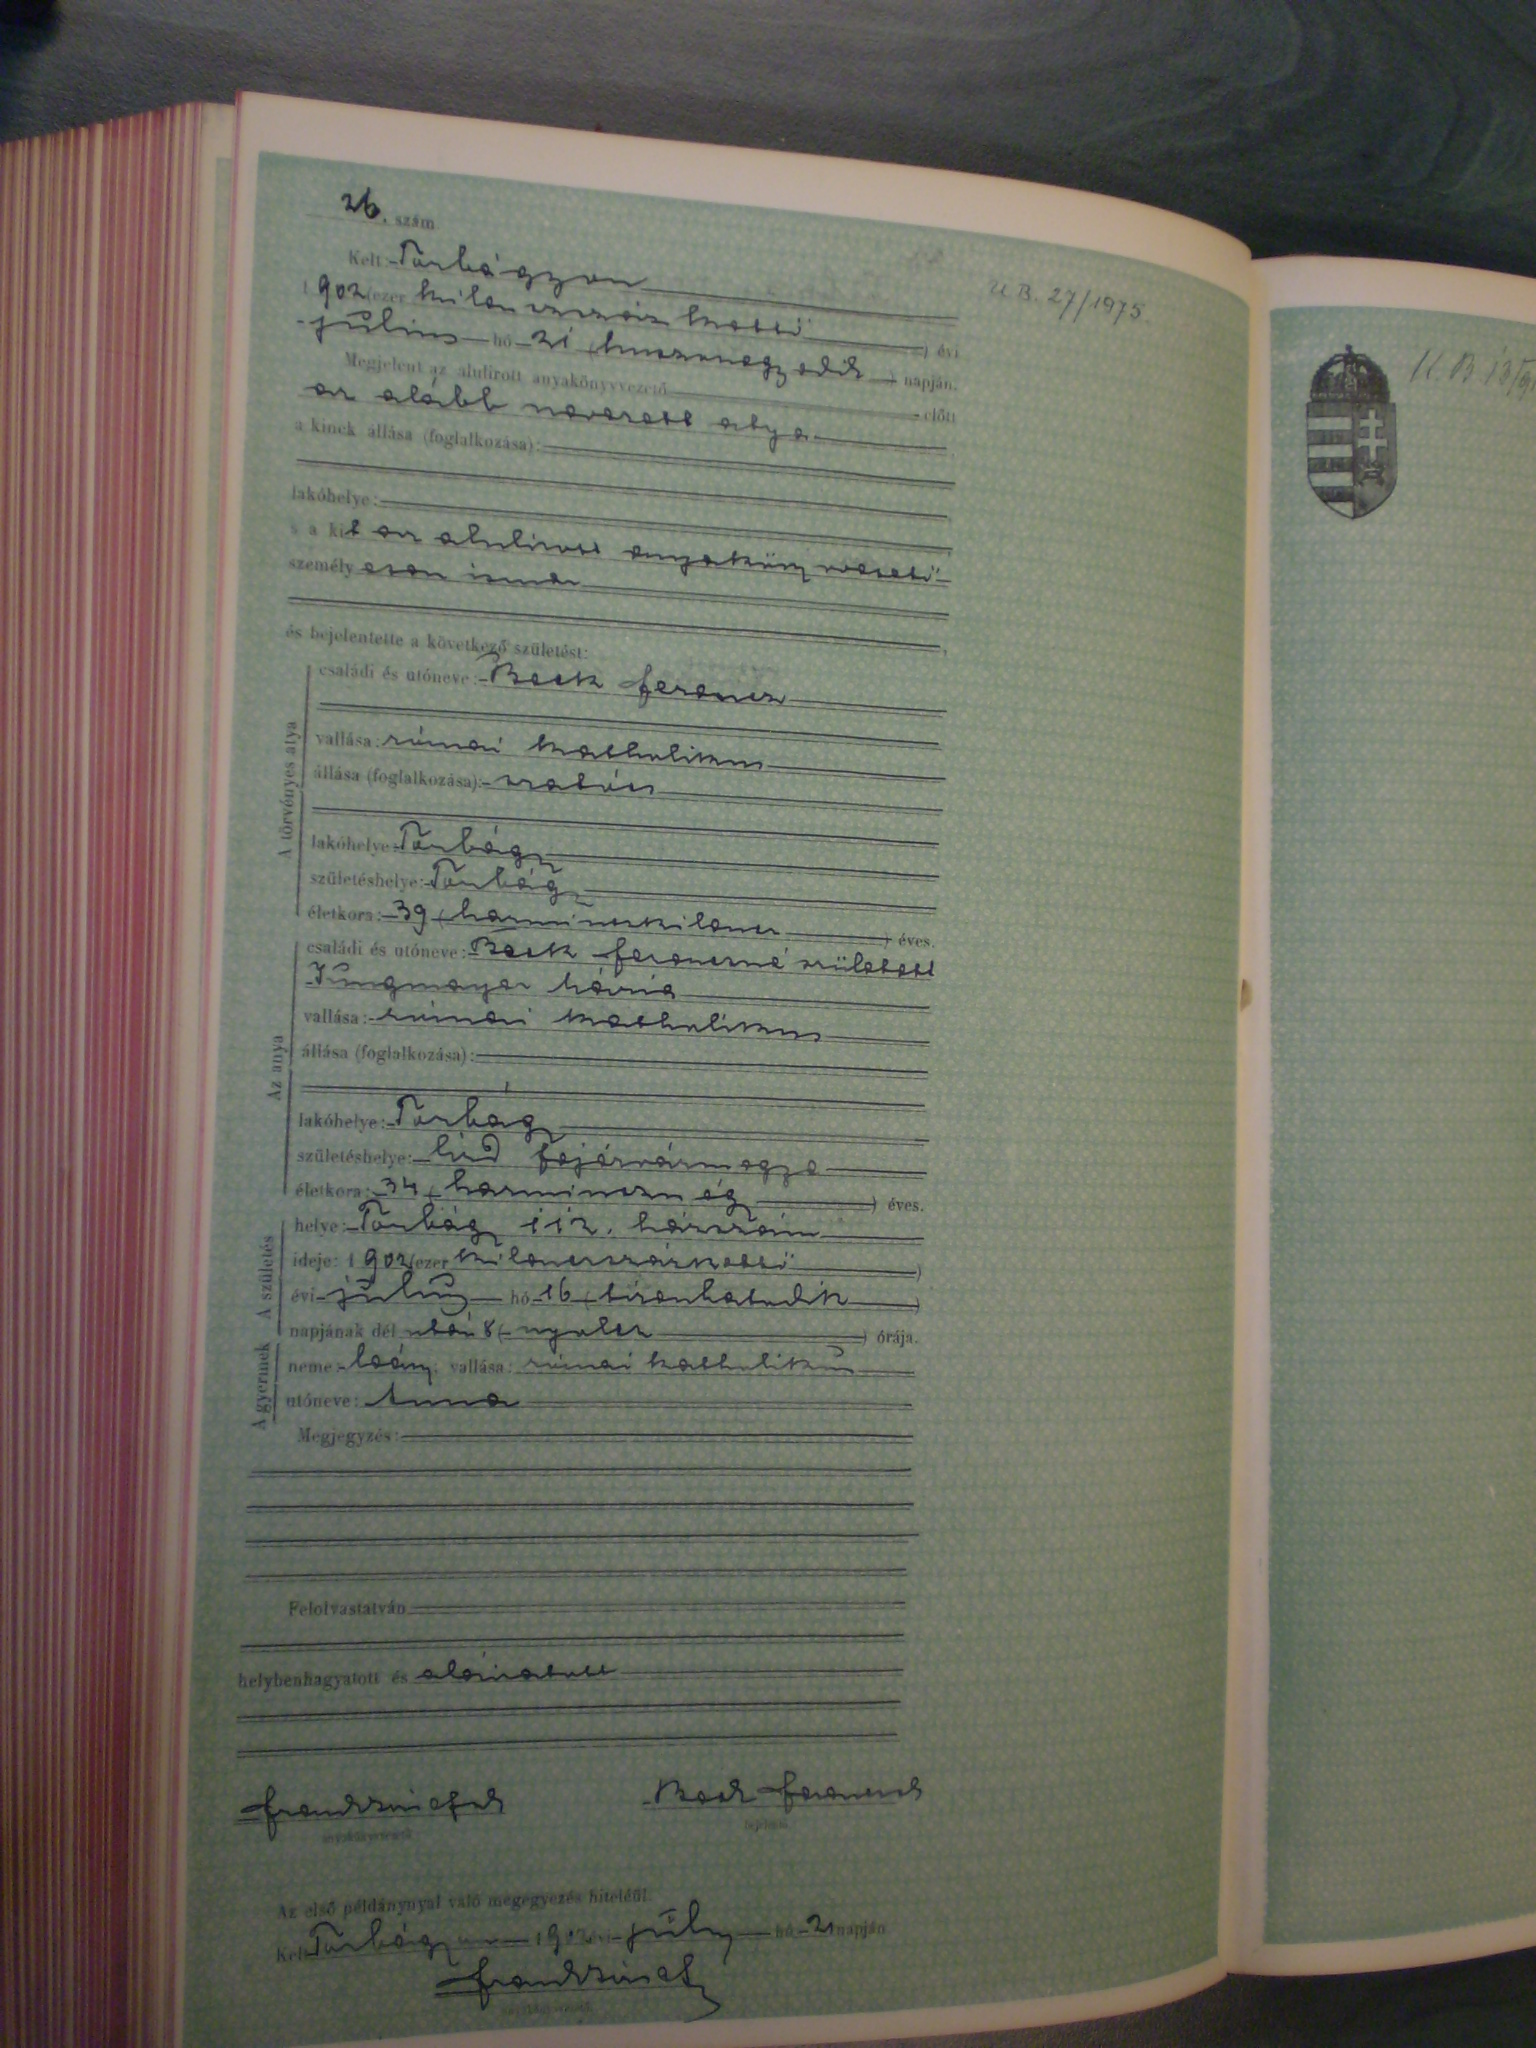 26. szám
U.B. 27/1975.
Kelt Torbágyon
1902 (ezer kilenczszáz kettő) évi
július hó 21 (huszonegyedik) napján.
Megjelent az alulirott anyakönyvvezető előtt
az alább nevezett atya
a kinek állása (foglalkozása):
lakóhelye:
s a kit az alulirott anyakönyvvezető
személyesen ismer
és bejelentette a következő születést:
A törvényes atya
családi és utóneve: Beck Ferencz
vallása: római katholikus
állása (foglalkozása): szatócs
lakóhelye: Torbágy
születéshelye: Torbágy
életkora: 39 (harminczkilencz) éves.
Az anya
családi és utóneve: Beck Ferenczné született
Jungmayer Mária
vallása: római katholikus
állása (foglalkozása):
lakóhelye: Torbágy
születéshelye: Fejérvármegye
életkora: 34 (harmincznégy) éves.
A születés
helye: Torbágy 112. házszám
ideje: 1902 (ezer kilenczszázkettő)
évi július hó 16 (tizenhatodik)
napjának dél után 8 (nyolcz) órája.
A gyermek
neme: leány, vallása: római katholikus
utóneve: Anna
Megjegyzés:
Felolvastatván
helybenhagyatott és aláiratott
Beck Ferencz
anyakönyvvezető
bejelentő
Az első példánynyal való megegyezés hiteléül.
Kelt Torbágyon 1902 évi júly hó 21 napján
anyakönyvvezető